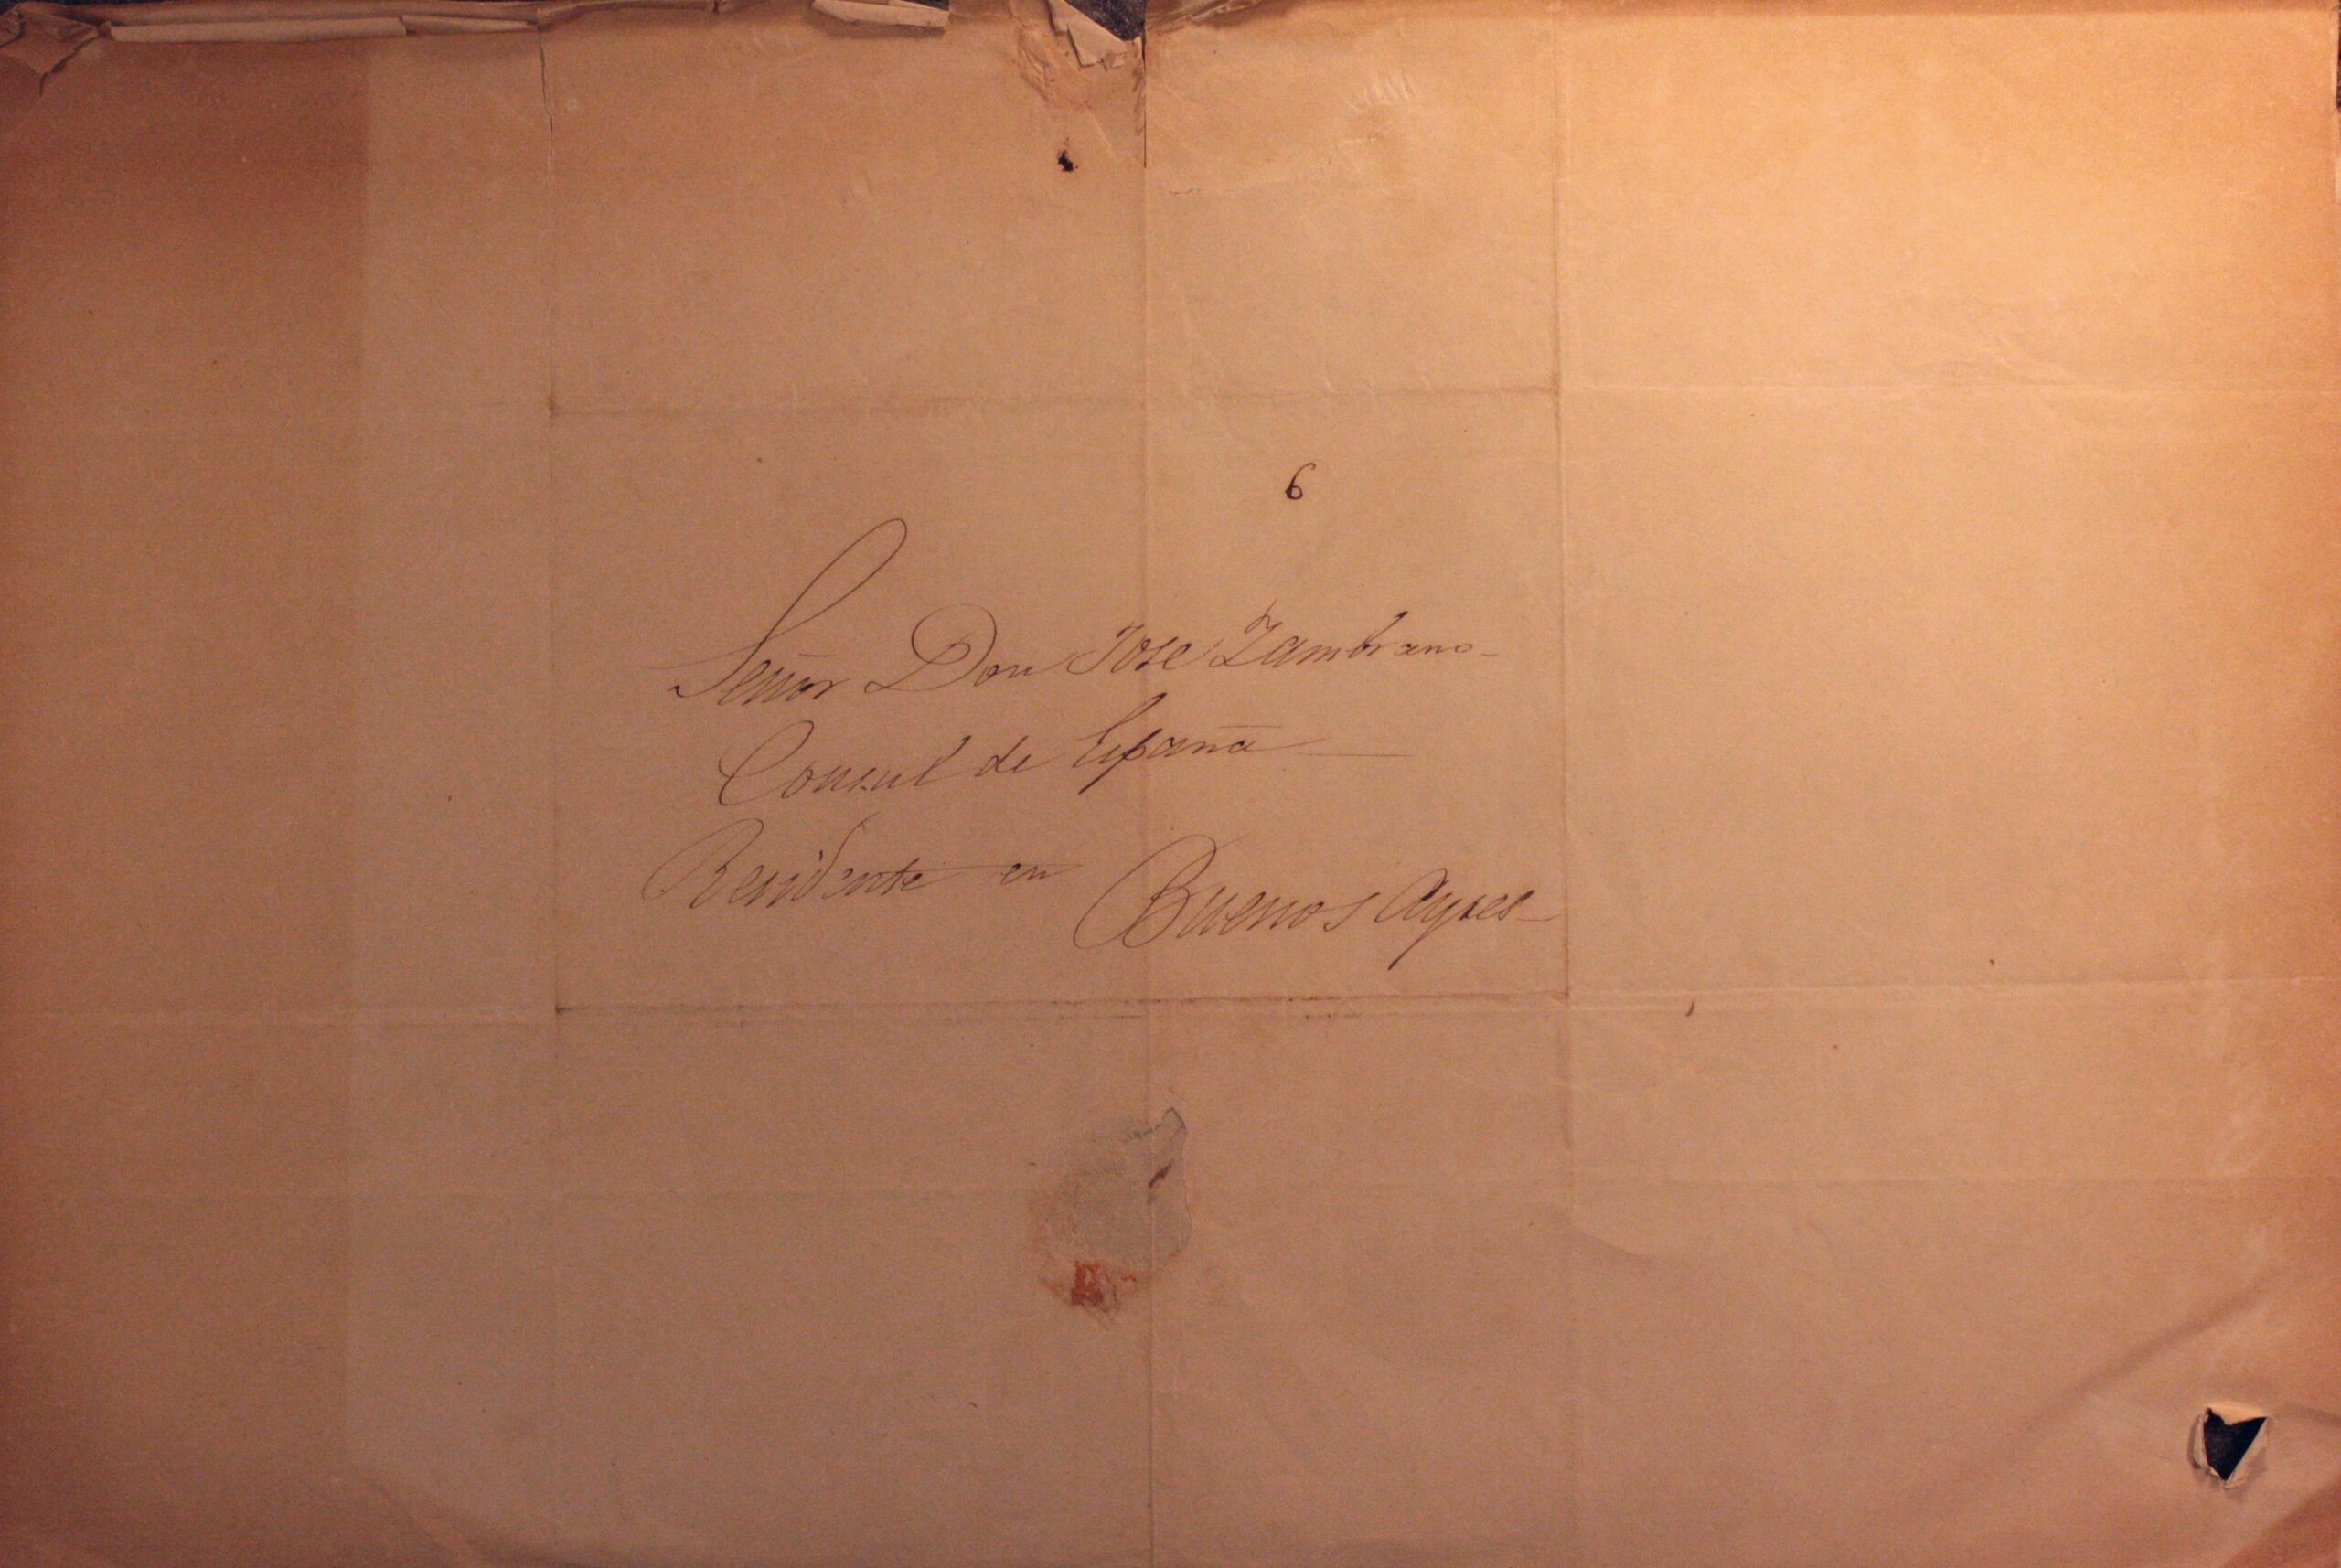 6
Señor Don Jose Zambrano
Consul de España
Residente en Buenos Ayres